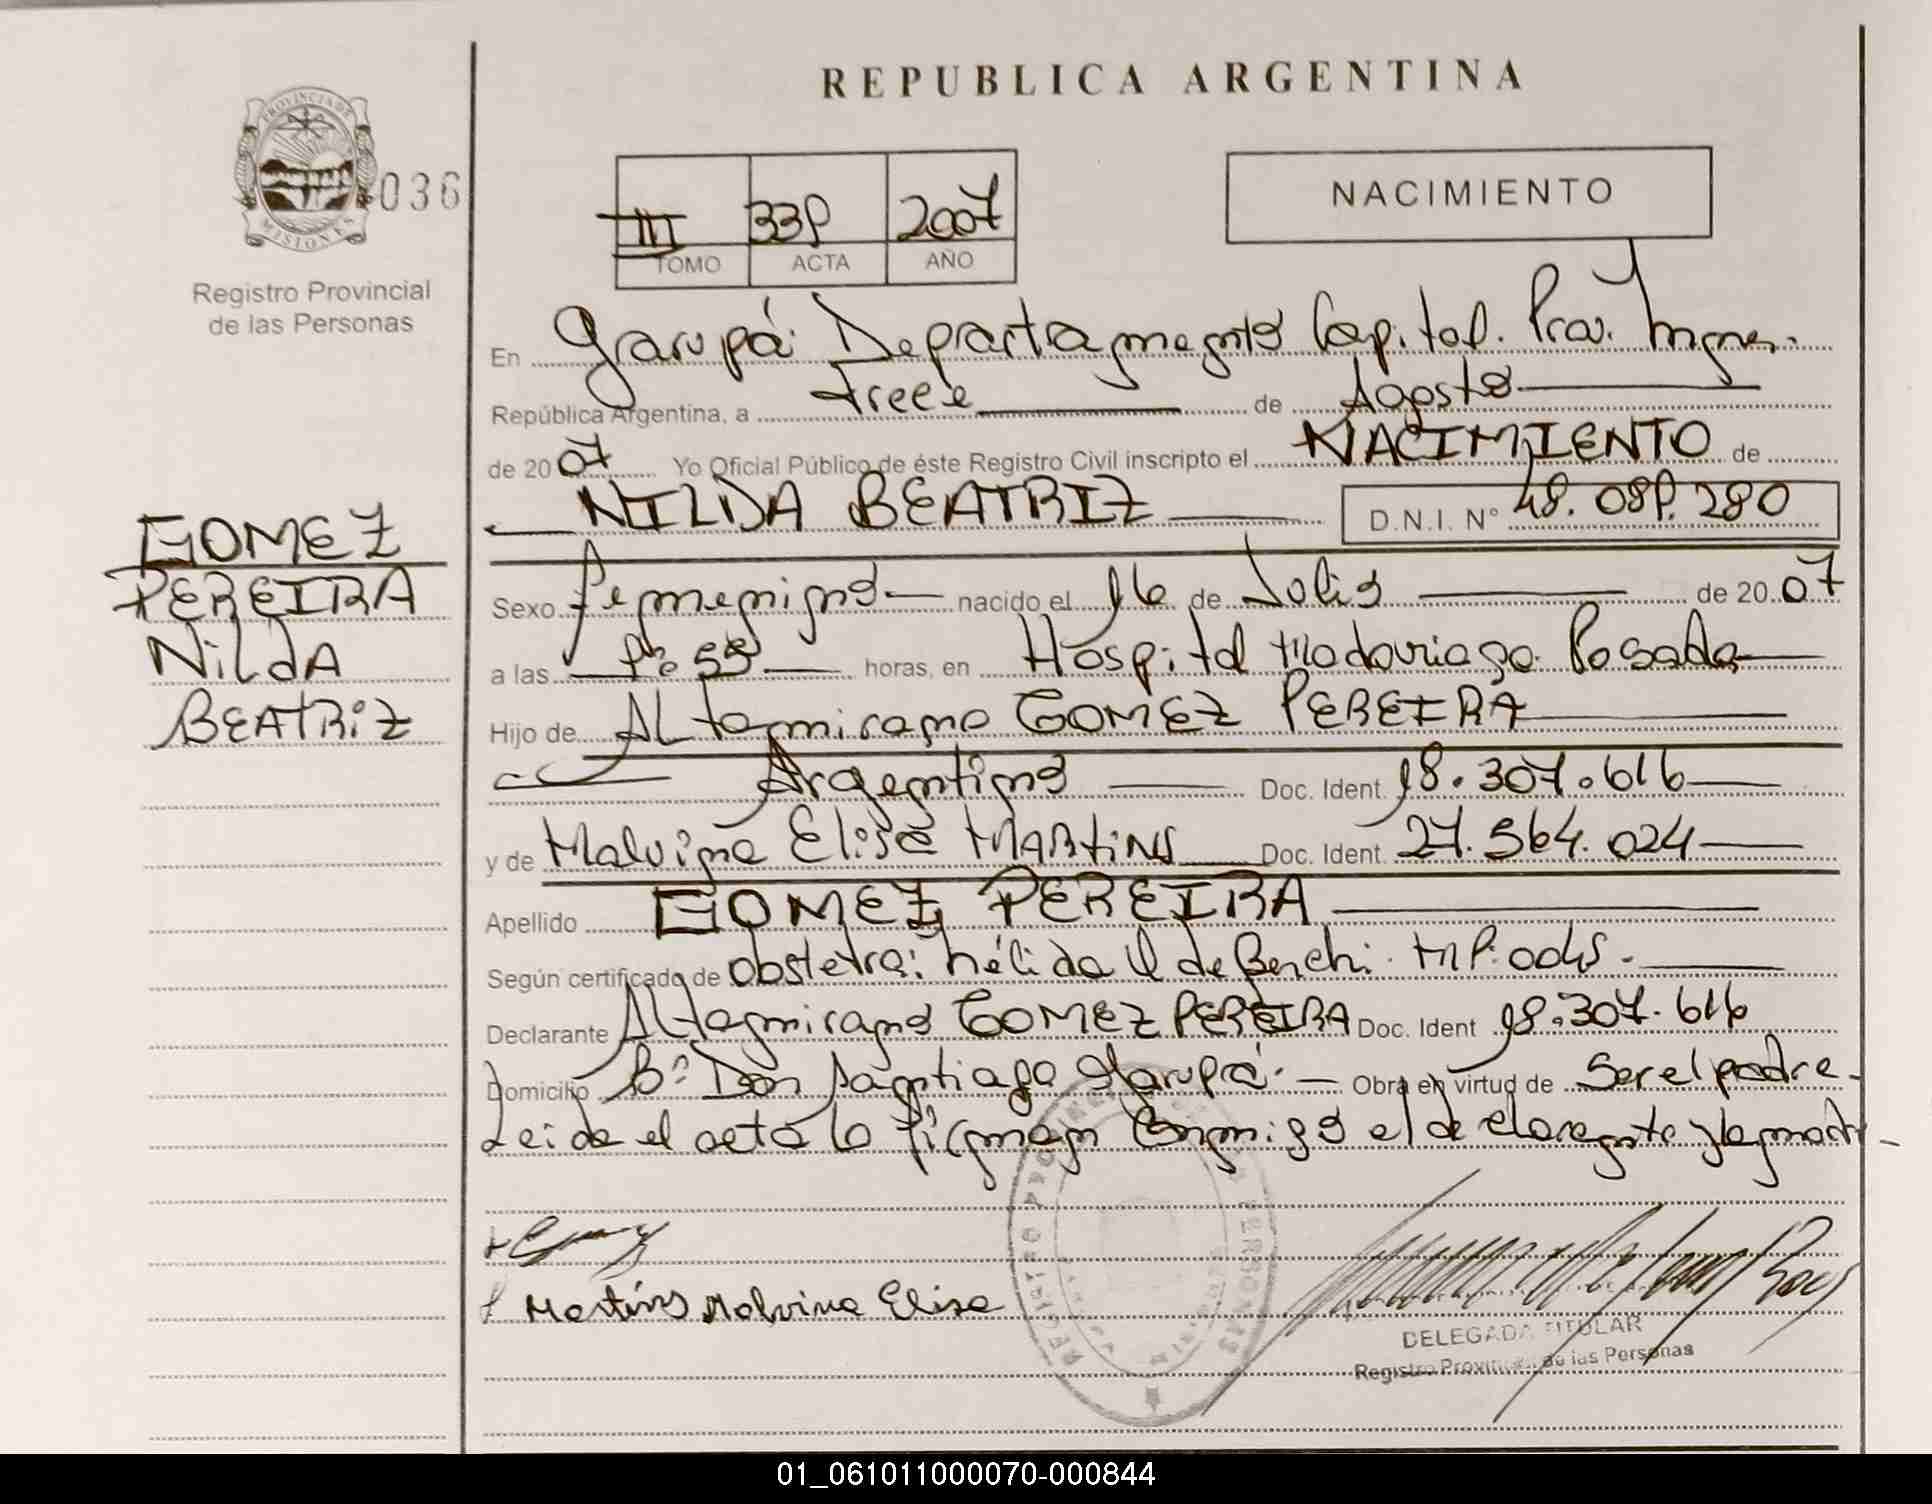 REPUBLICA ARGENTINA
PROVINCIA DE
MISIONES
036
Registro Provincial
de las Personas
III 339 2007
TOMO ACTA AÑO
NACIMIENTO
En Garupá Departamento Capital. Prov. Mnes.
República Argentina, a trece de Agosto
de 2007 Yo Oficial Público de éste Registro Civil inscripto el NACIMIENTO de
NILDA BEATRIZ D.N.I. N° 48.089.280
GOMEZ
PEREIRA
Nilda
BEATRIZ
Sexo femenino nacido el 16 de Julio de 2007
a las 55 horas, en Hospital Madariaga Posadas
Hijo de ALtamirano GOMEZ PEREIRA
Argentino Doc. Ident. 18.307.616
y de Malvina Elisa MARtiNS Doc. Ident. 27.564.024
Apellido GOMEZ PEREIRA
Según certificado de obstetra: Nélida de MP:
Declarante ALtamirano GOMEZ PEREIRA Doc. Ident 18.307.616
Domicilio B° Don Santiago Garupá. Obra en virtud de Ser el padre
Leida el acta la firman conmigo el declarante y la madre
Martins Malvina Elisa
REGISTRO PROVINCIAL DE LAS PERSONAS
DELEGADA TITULAR
Registro Provincial de las Personas
01_061011000070-000844